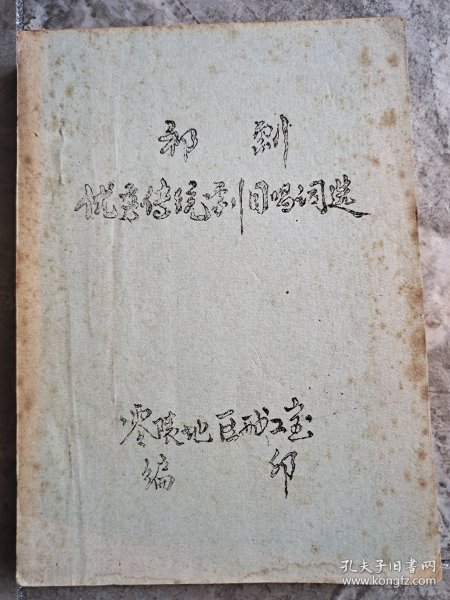 祁剧
优秀传统剧目唱词选
零陵地区戏工室
编印
孔夫子旧书网
www.kongfz.com